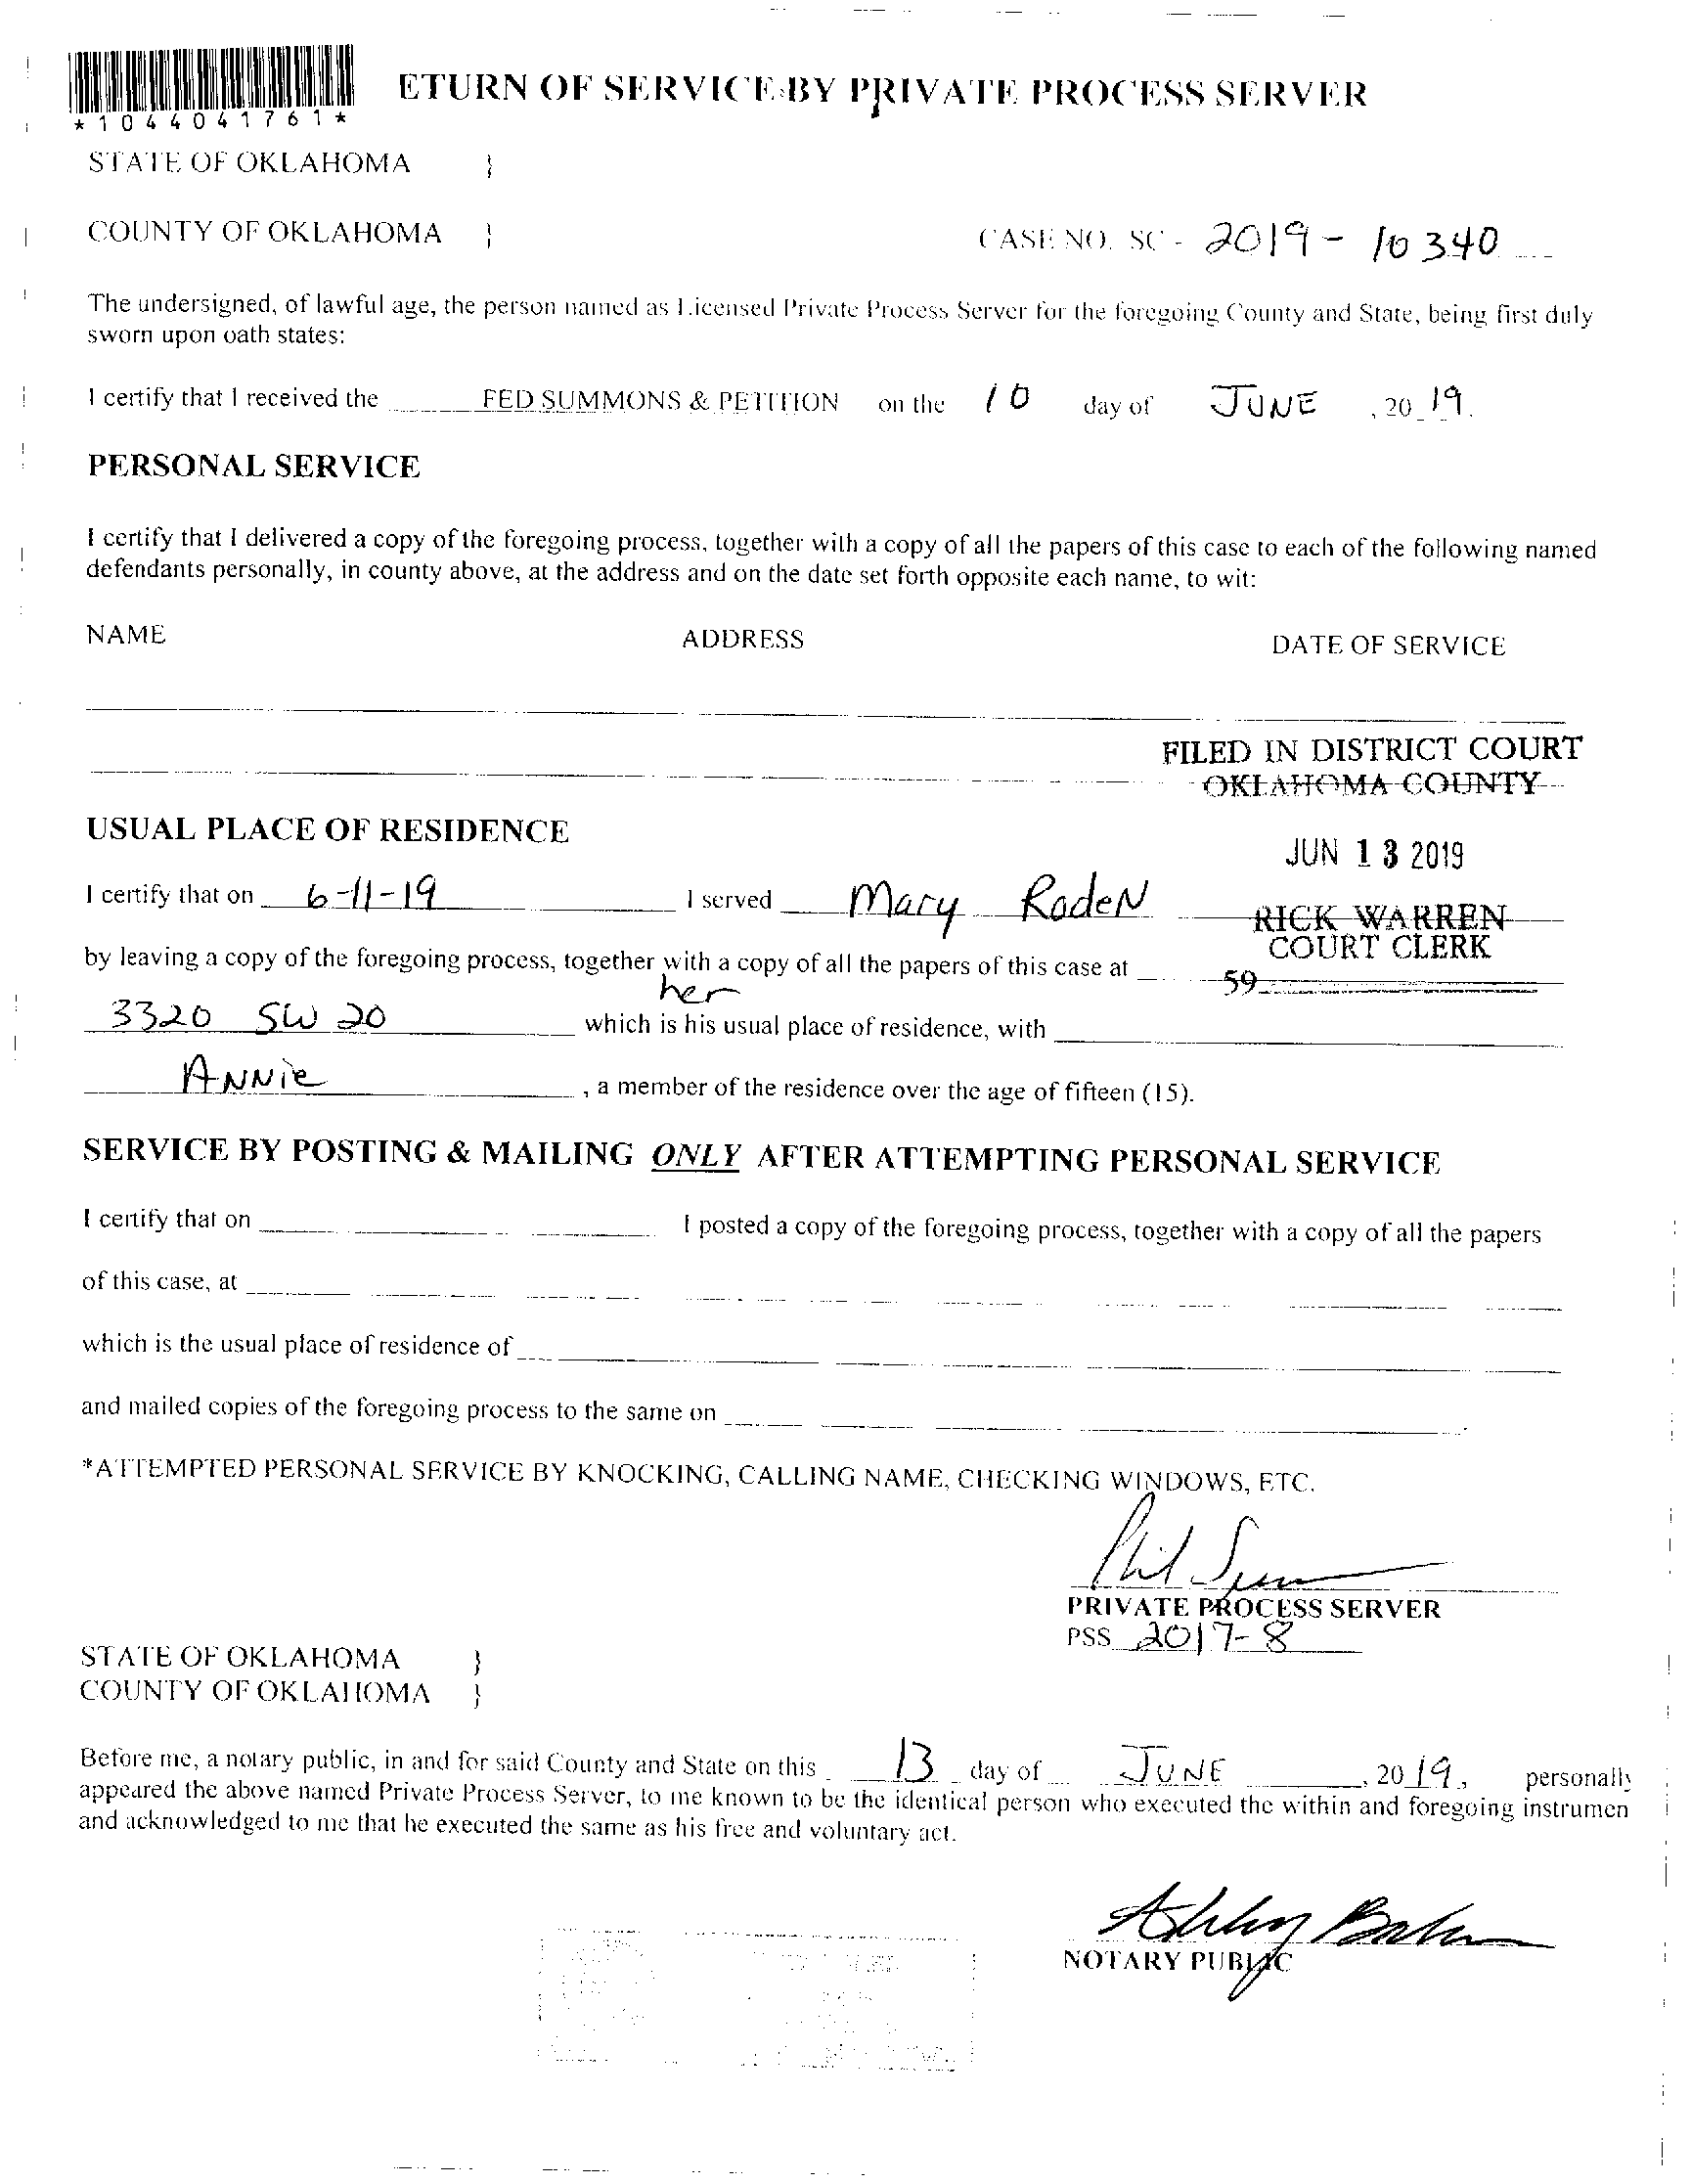 ETURN OF SERVICE BY PRIVATE PROCESS SERVER
*1044041761*
STATE OF OKLAHOMA }
COUNTY OF OKLAHOMA } CASE NO. SC - 2019 - 10340
The undersigned, of lawful age, the person named as Licensed Private Process Server for the foregoing County and State, being first duly
sworn upon oath states:
I certify that I received the FED SUMMONS & PETITION on the 10 day of JUNE , 20 19.
PERSONAL SERVICE
I certify that I delivered a copy of the foregoing process, together with a copy of all the papers of this case to each of the following named
defendants personally, in county above, at the address and on the date set forth opposite each name, to wit:
NAME ADDRESS DATE OF SERVICE
FILED IN DISTRICT COURT
OKLAHOMA COUNTY
USUAL PLACE OF RESIDENCE
JUN 13 2019
I certify that on 6-11-19 I served Mary RodeN
RICK WARREN
COURT CLERK
by leaving a copy of the foregoing process, together with a copy of all the papers of this case at
59
her
3320 SW 20 which is his usual place of residence, with
ANNie , a member of the residence over the age of fifteen (15).
SERVICE BY POSTING & MAILING ONLY AFTER ATTEMPTING PERSONAL SERVICE
I certify that on I posted a copy of the foregoing process, together with a copy of all the papers
of this case, at
which is the usual place of residence of
and mailed copies of the foregoing process to the same on
*ATTEMPTED PERSONAL SERVICE BY KNOCKING, CALLING NAME, CHECKING WINDOWS, ETC.
PRIVATE PROCESS SERVER
PSS 2017-8
STATE OF OKLAHOMA }
COUNTY OF OKLAHOMA }
Before me, a notary public, in and for said County and State on this 13 day of JUNE , 20 19, personally
appeared the above named Private Process Server, to me known to be the identical person who executed the within and foregoing instrumen
and acknowledged to me that he executed the same as his free and voluntary act.
NOTARY PUBLIC